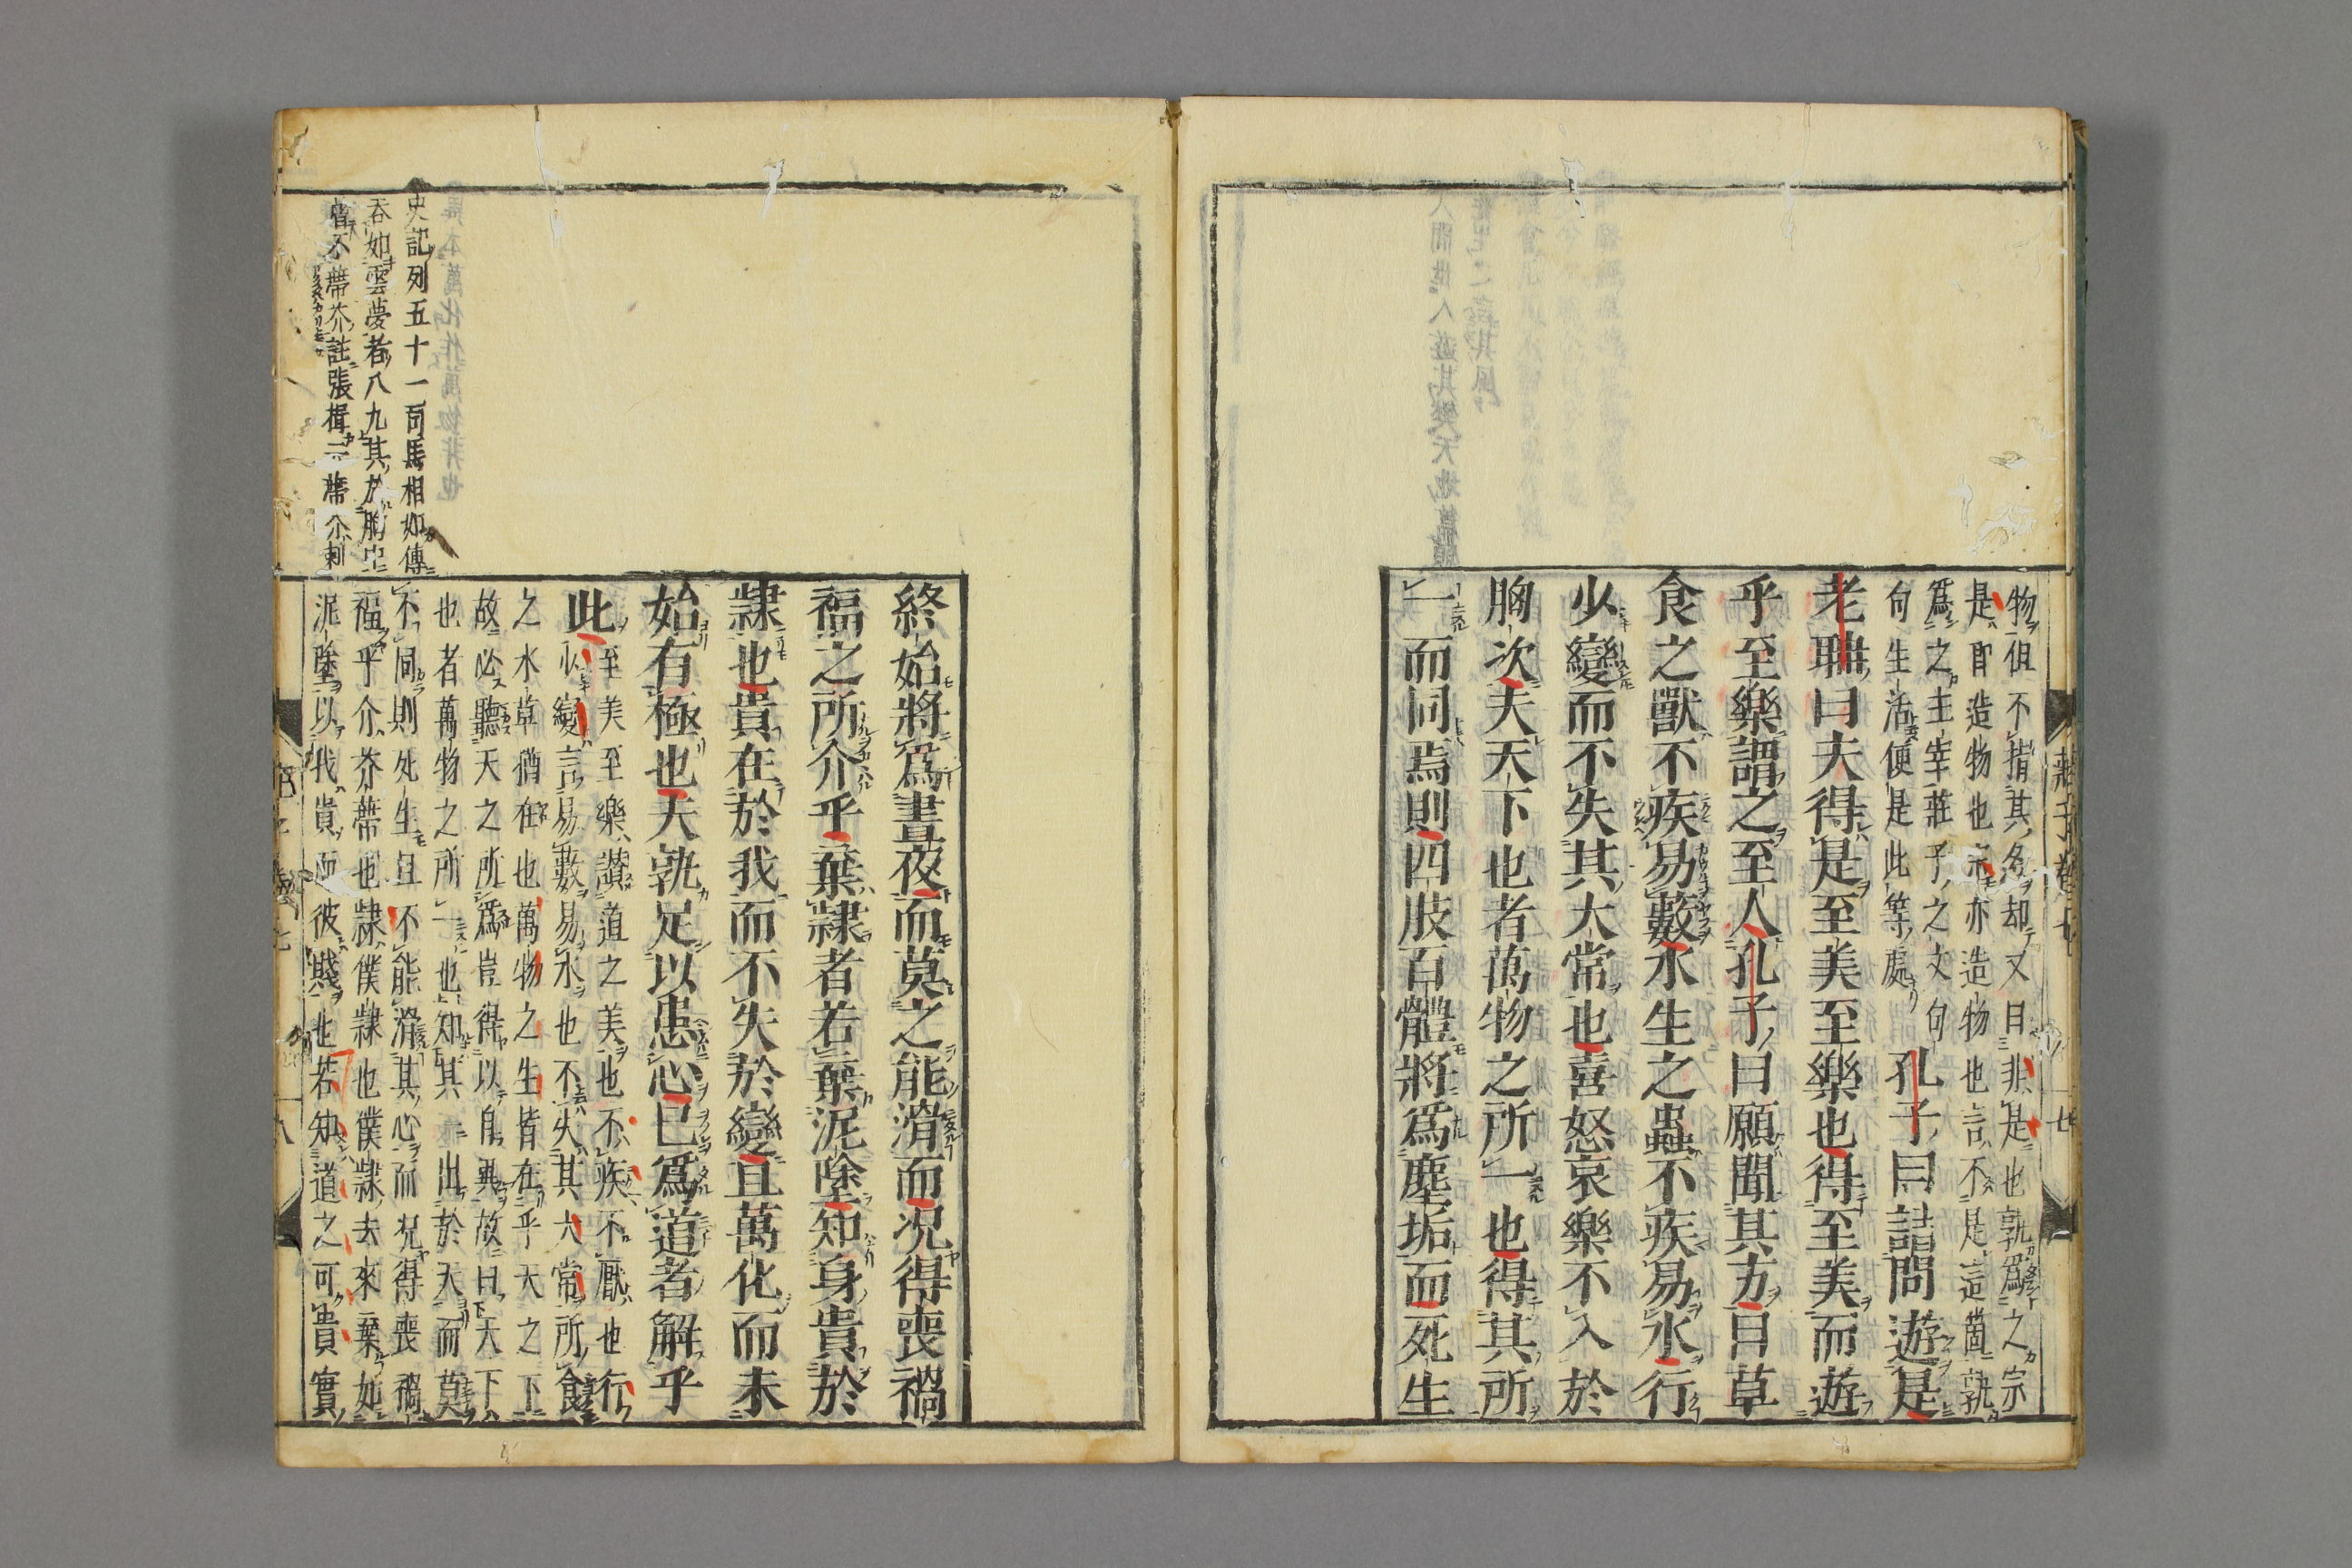 物但不指其名却又曰非是也孰爲之宗
是即造物也宗亦造物也言不是這箇孰
爲之主宰莊子之文句
句生活便是此等處
孔子曰請問遊是
老聃曰夫得是至美至樂也得至美而遊
乎至樂謂之至人孔子曰願聞其方曰草
食之獸不疾易藪水生之蟲不疾易水行
少變而不失其大常也喜怒哀樂不入於
胸次夫天下也者萬物之所一也得其所
一而同焉則四肢百體將爲塵垢而死生
莊子卷七
終始將爲晝夜而莫之能滑而况得喪禍
福之所介乎棄隸者若棄泥塗知身貴於
隸也貴在於我而不失於變且萬化而未
始有極也夫孰足以患心已爲道者解乎
此
至美至樂讃道之美也不疾不厭也行
小變言易藪易水也不失其大常所食
之水草猶在也萬物之生皆在乎天之下
故必聽天之所爲豈得以自異故曰天下
也者萬物之所一也知其一出於天而莫
不同則死生且不能滑其心而况得喪禍
福乎介芥蔕也隸僕隸也僕隸去來棄如
泥塗以我貴而彼賤也若知道之可貴實
史記列五十一司馬相如傳
吞如雲夢者八九其於胸中
曾不蔕芥註張揖云蔕介刺